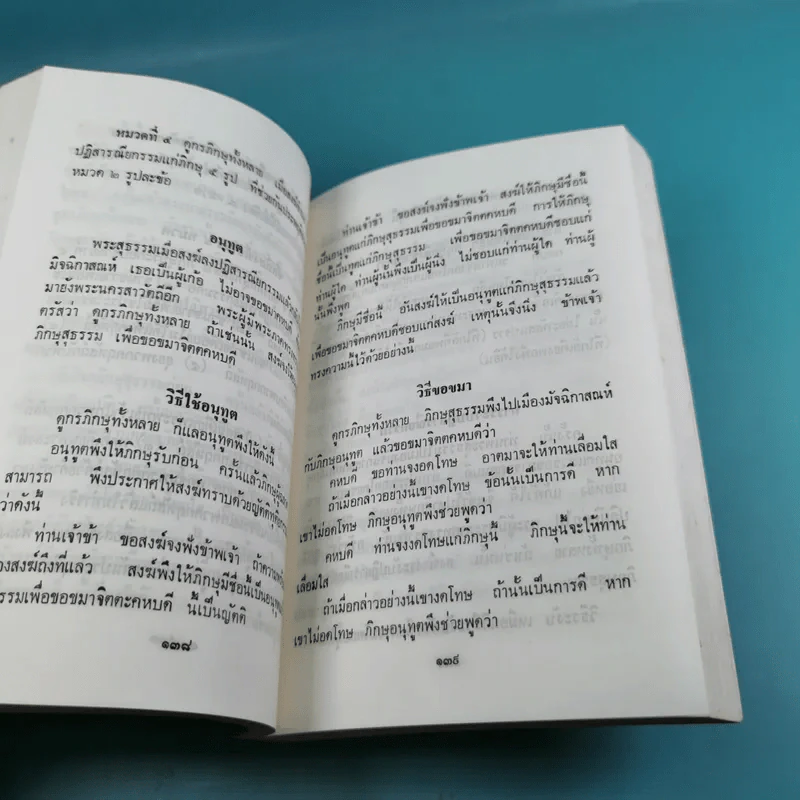 หมวดที่ ๔ ดูกรภิกษุทั้งหลาย เมื่อสงฆ์
ปฏิสารณียกรรมแก่ภิกษุ ๔ รูป ที่ช่วยกัน
หมวด ๒ รูปละข้อ
อนุทูต
พระสุธรรมเมื่อสงฆ์ลงปฏิสารณียกรรมแล้ว
มัจฉิกาสณห์ เธอเป็นผู้เก้อ ไม่อาจขอขมาคหบดี
มายังพระนครสาวัตถีอีก พระผู้มีพระภาค
ตรัสว่า ดูกรภิกษุทั้งหลาย ถ้าเช่นนั้น สงฆ์จง
ภิกษุสุธรรม เพื่อขอขมาจิตตคหบดี
วิธีใช้อนุทูต
ดูกรภิกษุทั้งหลาย ก็แลอนุทูตพึงให้ดังนี้
อนุทูตพึงให้ภิกษุรับก่อน ครั้นแล้วภิกษุ
สามารถ พึงประกาศให้สงฆ์ทราบด้วยญัตติ
ว่าดังนี้
ท่านเจ้าข้า ขอสงฆ์จงฟังข้าพเจ้า ถ้าความ
องสงฆ์ถึงที่แล้ว สงฆ์พึงให้ภิกษุมีชื่อนี้เป็นอนุทูต
รรมเพื่อขอขมาจิตตะคหบดี นี้เป็นญัตติ
๑๓๘
ท่านเจ้าข้า ขอสงฆ์จงฟังข้าพเจ้า สงฆ์ให้ภิกษุมีชื่อนี้
เป็นอนุทูตแก่ภิกษุสุธรรมเพื่อขอขมาจิตตคหบดี การให้ภิกษุ
ชื่อนี้เป็นทูตแก่ภิกษุสุธรรม เพื่อขอขมาจิตตคหบดีชอบแก่
ท่านผู้ใด ท่านผู้นั้นพึงเป็นผู้นิ่ง ไม่ชอบแก่ท่านผู้ใด ท่านผู้
นั้นพึงพูด
ภิกษุมีชื่อนี้ อันสงฆ์ให้เป็นอนุทูตแก่ภิกษุสุธรรมแล้ว
เพื่อขอขมาจิตตคหบดีชอบแก่สงฆ์ เหตุนั้นจึงนิ่ง ข้าพเจ้า
ทรงความนี้ไว้ด้วยอย่างนี้
วิธีขอขมา
ดูกรภิกษุทั้งหลาย ภิกษุสุธรรมพึงไปเมืองมัจฉิกาสณห์
กับภิกษุอนุทูต แล้วขอขมาจิตตคหบดีว่า
คหบดี ขอท่านจงอดโทษ อาตมาจะให้ท่านเลื่อมใส
ถ้าเมื่อกล่าวอย่างนี้เขางดโทษ ข้อนั้นเป็นการดี หาก
เขาไม่อดโทษ ภิกษุอนุทูตพึงช่วยพูดว่า
คหบดี ท่านจงงดโทษแก่ภิกษุนี้ ภิกษุนี้จะให้ท่าน
เลื่อมใส
ถ้าเมื่อกล่าวอย่างนี้เขางดโทษ ถ้านั้นเป็นการดี หาก
เขาไม่อดโทษ ภิกษุอนุทูตพึงช่วยพูดว่า
๑๓๙